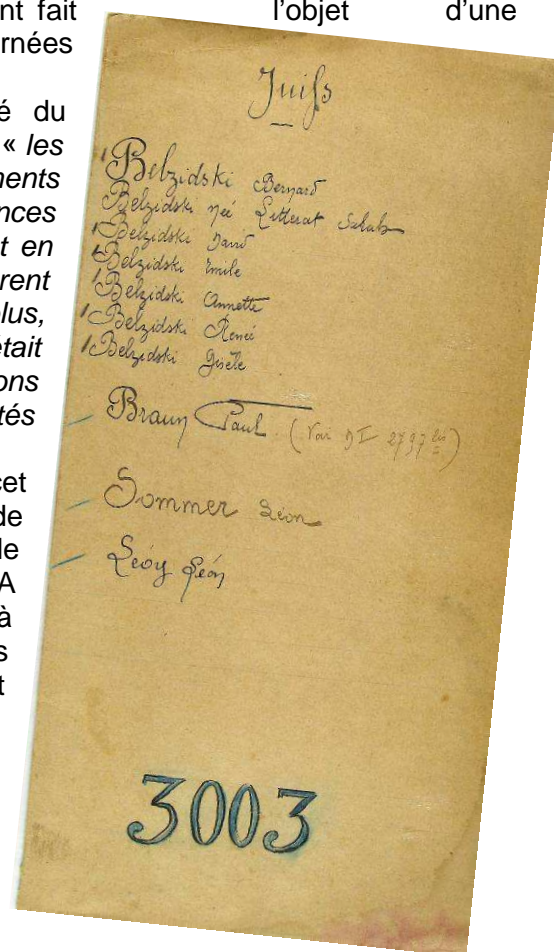 nt fait l'objet d'une
rnées
é du
« les
ments
nces
t en
rent
lus,
était
ons
tés
cet
de
le
A
à
s
t
Juifs
Belzidski Bernard
Belzidski née Litterat
Belzidski David
Belzidski Emile
Belzidski Annette
Belzidski Renée
Belzidski Gisèle
Braun Paul (Voir 2797 bis)
Sommer Léon
Léon
3003